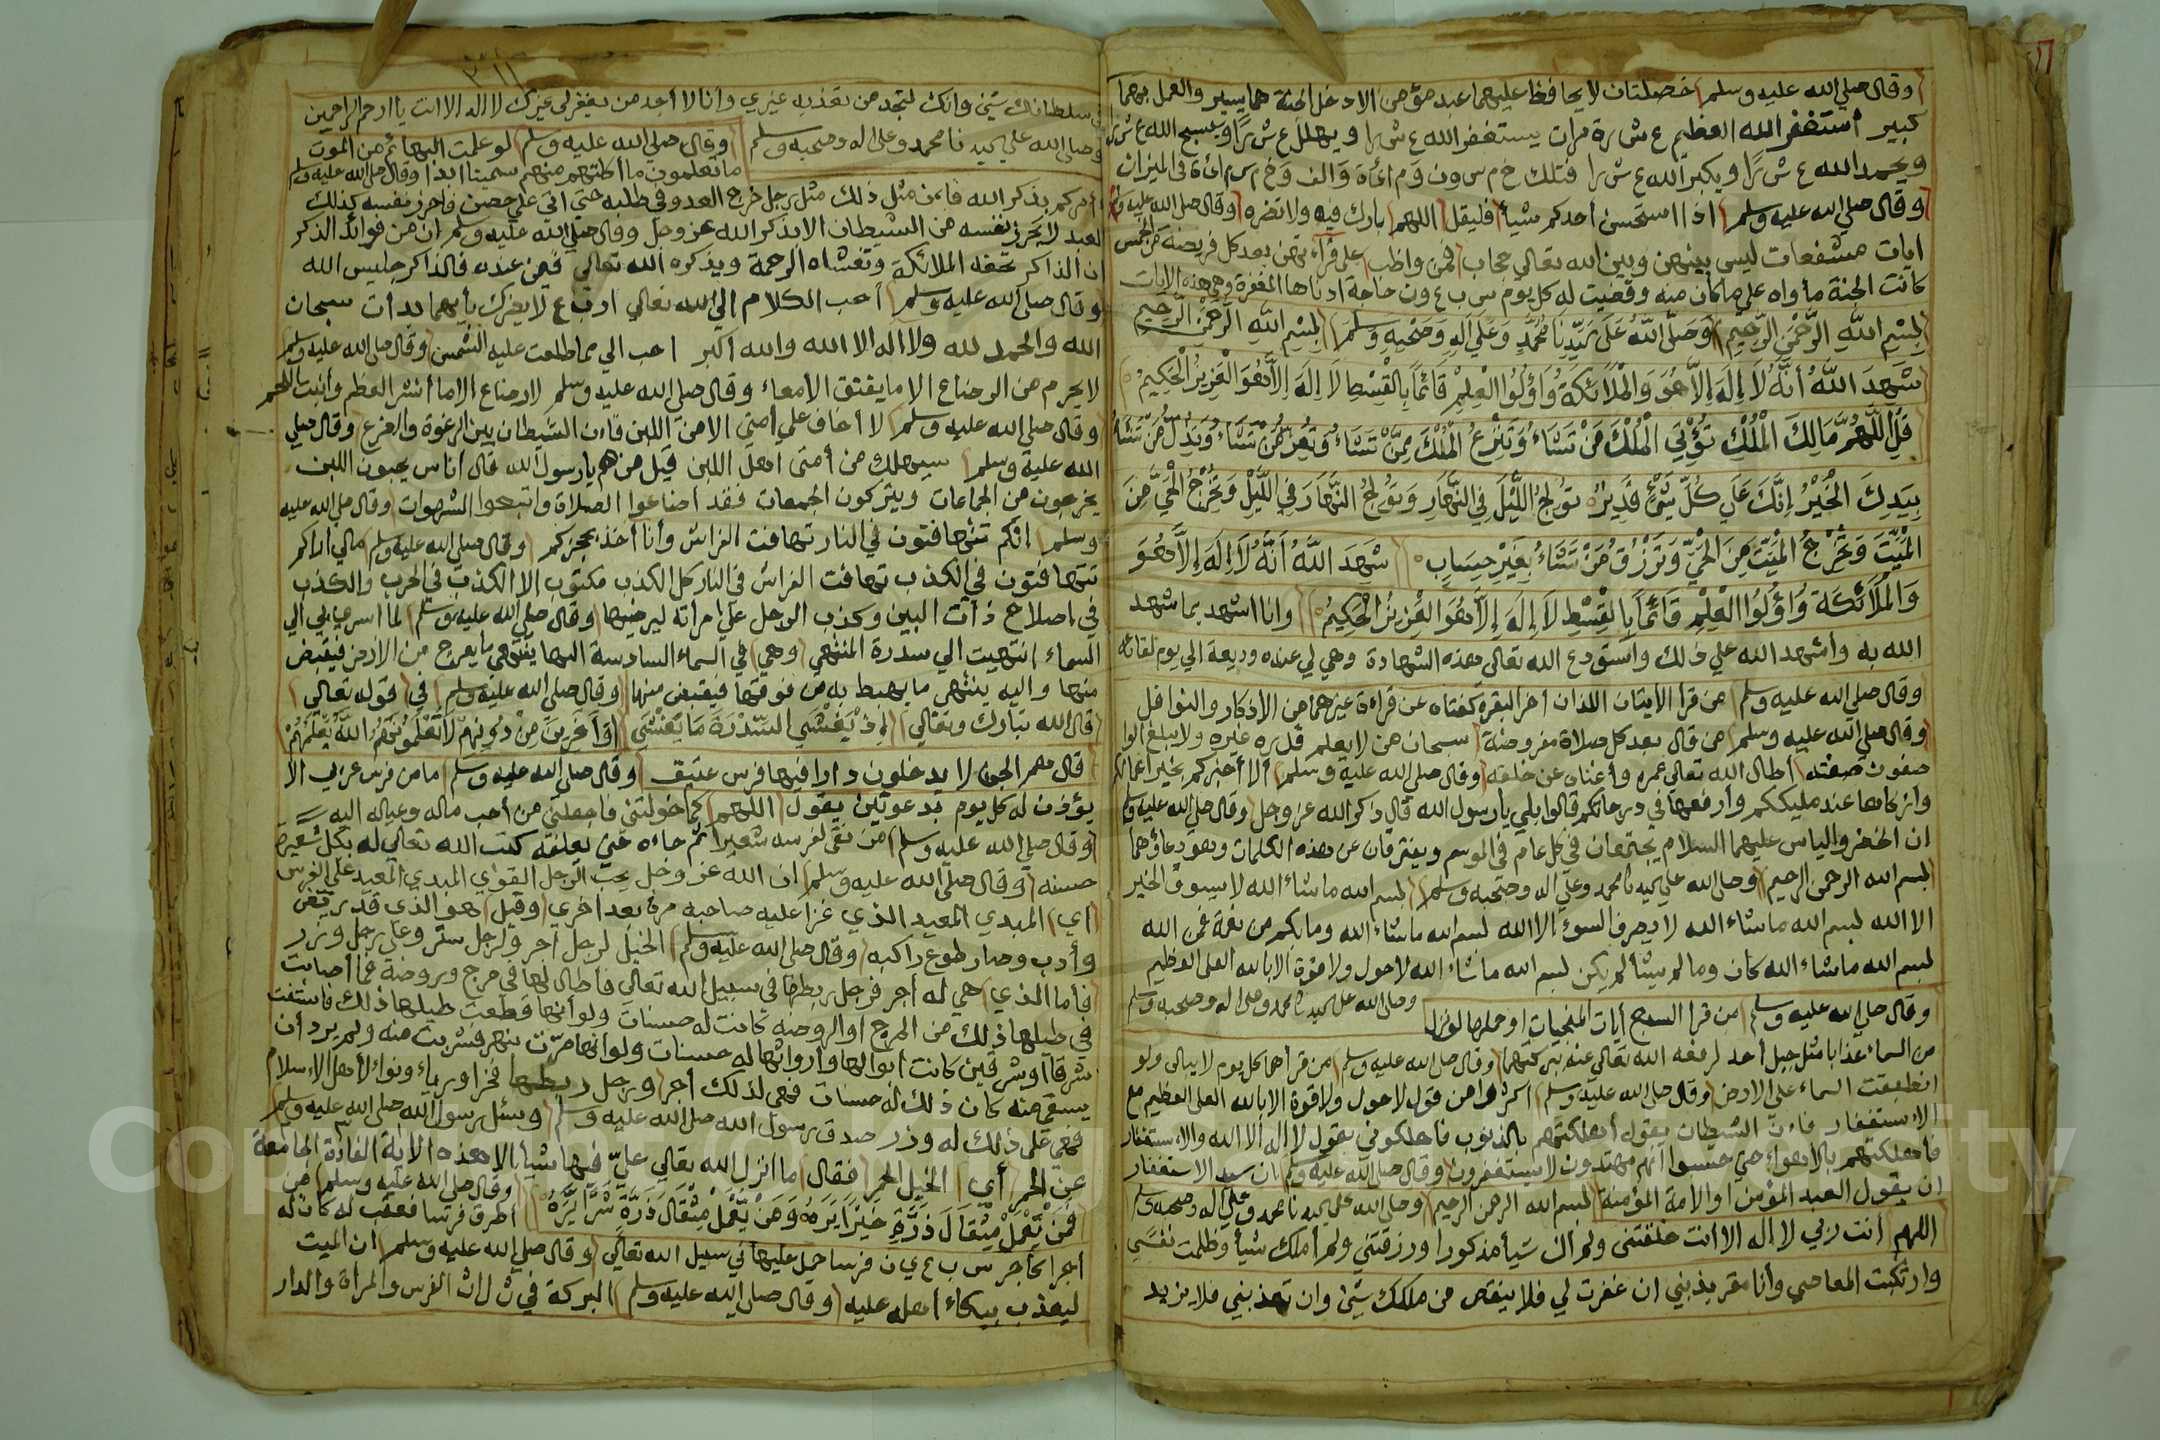 وقال صلى الله عليه وسلم خصلتان لا يحافظ عليهما عبد مؤمن الا دخل الجنة هما يسير والعمل بهما
كبير أستغفر الله العظيم ع ش رة مرات يستغفر الله ع ش را ويهلل ع ش را ويسبح الله ع ش را
ويحمد الله ع ش را ويكبر الله ع ش را فتلك خ م س ون وم ائة وألف وخ م س م ائة في الميزان
وقال صلى الله عليه وسلم اذا استحسن أحدكم شيأ فليقل اللهم بارك فيه ولا تضره وقال صلى الله عليه وسلم
ايات مشفعات ليس بينهن وبين الله تعالي حجاب فمن واظب على قرأتهن بعد كل فريضة من الخمس
كانت الجنة مأواه علي ما كان منه وقضيت له كل يوم س ب ع ون حاجة ادناها المغفرة وهي هذه الايات
بسم الله الرحمن الرحيم وصلى الله على سيدنا محمد وعلى اله وصحبه وسلم بسم الله الرحمن الرحيم
شهد الله أنه لا إله إلا هو والملائكة وأولوا العلم قائما بالقسط لا إله إلا هو العزيز الحكيم
قل اللهم مالك الملك تؤتي الملك من تشاء وتنزع الملك ممن تشاء وتعز من تشاء وتذل من تشاء
بيدك الخير إنك علي كل شئ قدير تولج الليل في النهار وتولج النهار في الليل وتخرج الحي من
الميت وتخرج الميت من الحي وترزق من تشاء بغير حساب شهد الله أنه لا إله إلا هو
والملائكة وأولوا العلم قائما بالقسط لا إله إلا هو العزيز الحكيم وانا اشهد بما شهد
الله به وأشهد الله علي ذلك واستودع الله تعالى هذه الشهادة وهي لي عنده وديعة الي يوم لقائه
وقال صلي الله عليه وسلم من قرا الايتان اللذان اخر البقرة كفتاه عن قراءة غيرهما من الاذكار والنوافل
وقال صلي الله عليه وسلم من قال بعد كل صلاة مفروضة سبحان من لا يعلم قدره غيره ولا يبلغ الوا
صفون صفته أطال الله تعالي عمره وأغناه عن خلقه وقال صلي الله عليه وسلم ألا أخبركم بخير أعمالكم
وازكاها عند مليككم وأرفعها في درجاتكم قالوا بلي يا رسول الله قال ذكر الله عز وجل وقال صلي الله عليه وسلم
ان الخضر والياس عليهما السلام يجتمعان في كل عام في الموسم ويفترقان عن هذه الكلمات وهو دعاؤهما
بسم الله الرحمن الرحيم وصلى الله على سيدنا محمد وعلي اله وصحبه وسلم بسم الله ما شاء الله لا يسوق الخير
الا الله بسم الله ما شاء الله لا يصرف السوء الا الله بسم الله ما شاء الله وما بكم من نعمة فمن الله
بسم الله ما شاء الله كان وما لم يشأ لم يكن بسم الله ما شاء الله لا حول ولا قوة الا بالله العلي العظيم
وقال صلي الله عليه وسلم من قرا السبع أيات المنجيات او حملها لو نزل وصلى الله على سيدنا محمد وعلى اله وصحبه وسلم
من السماء عذابا مثل جبل أحد لرفعه الله تعالي عنه ببركتها وقال صلى الله عليه وسلم من قرأها كل يوم لا يبالي ولو
انطبقت السماء على الارض وقال صلى الله عليه وسلم أكثروا من قول لا حول ولا قوة الا بالله العلي العظيم مع
الاستغفار فان الشيطان يقول أهلكتهم بالذنوب فاهلكوني بقول لا إله الا الله والاستغفار
فأهلكتهم بالاهواء حتي حسبوا أنهم مهتدون لا يستغفرون وقال صلى الله عليه وسلم ان سيد الاستغفار
ان يقول العبد المؤمن او الامة المؤمنة بسم الله الرحمن الرحيم وصلى الله على سيدنا محمد وعلي اله وصحبه وسلم
اللهم أنت ربي لا اله الا انت خلقتني ولم اك شيأ مذكورا ورزقتني ولم أملك شيأ وظلمت نفسي
وارتكبت المعاصي وأنا مقر بذنبي ان غفرت لي فلا ينقص من ملكك شئ وان تعذبني فلا يزيد
في سلطانك شئ وانك لتجد من تعذبه غيري وأنا لا أجد من يغفر لي غيرك لا اله الا انت يا ارحم الراحمين
وصلى الله على سيدنا محمد وعلى اله وصحبه وسلم وقال صلي الله عليه وسلم لو علمت البهائم من الموت
ما تعلمون ما أكلتم منهم سمينا ابدا وقال صلى الله عليه وسلم
أمركم بذكر الله فان مثل ذلك مثل رجل خرج العدو في طلبه حتى اتى علي حصن فاحرز نفسه كذلك
العبد لا يحرز نفسه من الشيطان الا بذكر الله عز وجل وقال صلي الله عليه وسلم ان من فوائد الذكر
ان الذاكر تحفه الملائكة وتغشاه الرحمة ويذكره الله تعالي فيمن عنده فالذاكر جليس الله
وقال صلى الله عليه وسلم أحب الكلام الي الله تعالي ارب ع لا يضرك بأيهما بدأت سبحان
الله والحمد لله ولا اله الا الله والله أكبر احب الي مما طلعت عليه الشمس وقال صلى الله عليه وسلم
لا يحرم من الرضاع الا ما يفتق الأمعاء وقال صلى الله عليه وسلم لا رضاع الا ما أنشر العظم وأنبت اللحم
وقال صلي الله عليه وسلم لا أخاف علي أمتي الا من اللبن فان الشيطان بين الرغوة والضرع وقال صلي
الله عليه وسلم سيهلك من أمتى اهل اللبن قيل من هم يا رسول الله قال اناس يحبون اللبن
يخرجون من الجماعات ويتركون الجمعات فقد اضاعوا الصلاة واتبعوا الشهوات وقال صلى الله عليه
وسلم انكم تتهافتون في النار تهافت الفراش وأنا أخذ بحجزكم وقال صلى الله عليه وسلم مالي اراكم
تتهافتون في الكذب تهافت الفراش في النار كل الكذب مكتوب الا الكذب في الحرب والكذب
في اصلاح ذات البين وكذب الرجل علي امرأته ليرضيها وقال صلي الله عليه وسلم لما اسري بي الي
السماء انتهيت الي سدرة المنتهي وهي في السماء السادسة اليها ينتهي ما يعرج من الارض فيقبض
منها واليه ينتهي ما يهبط به من فوقها فيقبض منها وقال صلي الله عليه وسلم في قوله تعالي
قال الله تبارك وتعالي اذ يغشي السدرة ما يغشى واخرين من دونهم لا تعلمونهم الله يعلمهم
قال هم الجن لا يدخلون دارا فيها فرس عتيق وقال صلي الله عليه وسلم ما من فرس عربي الا
يؤذن له كل يوم بدعوتين يقول اللهم كما خولتني فاجعلني من أحب ماله وعياله اليه
وقال صلي الله عليه وسلم من نقى لفرسه شعيرا ثم جاءه حتي يعلفه كتب الله تعالي له بكل شعيرة
حسنة وقال صلي الله عليه وسلم ان الله عز وجل يحب الرجل القوي المبدي المعيد علي الفرس
أي المبدي المعيد الذي غزا عليه صاحبه مرة بعد اخري وقيل هو الذي قد ريض
وأدب وصار طوع راكبه وقال صلى الله عليه وسلم الخيل لرجل اجر ولرجل ستر وعلى رجل وزر
فأما الذي هي له أجر فرجل ربطها في سبيل الله تعالى فأطال لها في مرج وروضة فما أصابت
في طيلها ذلك من المرج او الروضة كانت له حسنات ولو أنها قطعت طيلها ذلك فاستنت
شرفا أو شرفين كانت أبوالها وأرواثها له حسنات ولو أنها مرت بنهر فشربت منه ولم يرد أن
يسقي منه كان ذلك له حسنات فهي لذلك أجر ورجل ربطها فخرا ورياء ونواء لأهل الاسلام
فهي على ذلك له وزر صدق رسول الله صلى الله عليه وسلم وسئل رسول الله صلى الله عليه وسلم
عن الحمر أي الخيل الحمر فقال ما انزل الله تعالي علي فيها شيأ الا هذه الاية الفاذة الجامعة
فمن يعمل مثقال ذرة خيرا يره ومن يعمل مثقال ذرة شرا يره وقال صلى الله عليه وسلم من
اطرق فرسا فعقب له كان له
أجر كأجر س ب ع ي ن فرسا حمل عليها في سبيل الله تعالي وقال صلي الله عليه وسلم ان الميت
ليعذب ببكاء أهله عليه وقال صلى الله عليه وسلم البركة في ث ل اث الفرس والمرأة والدار